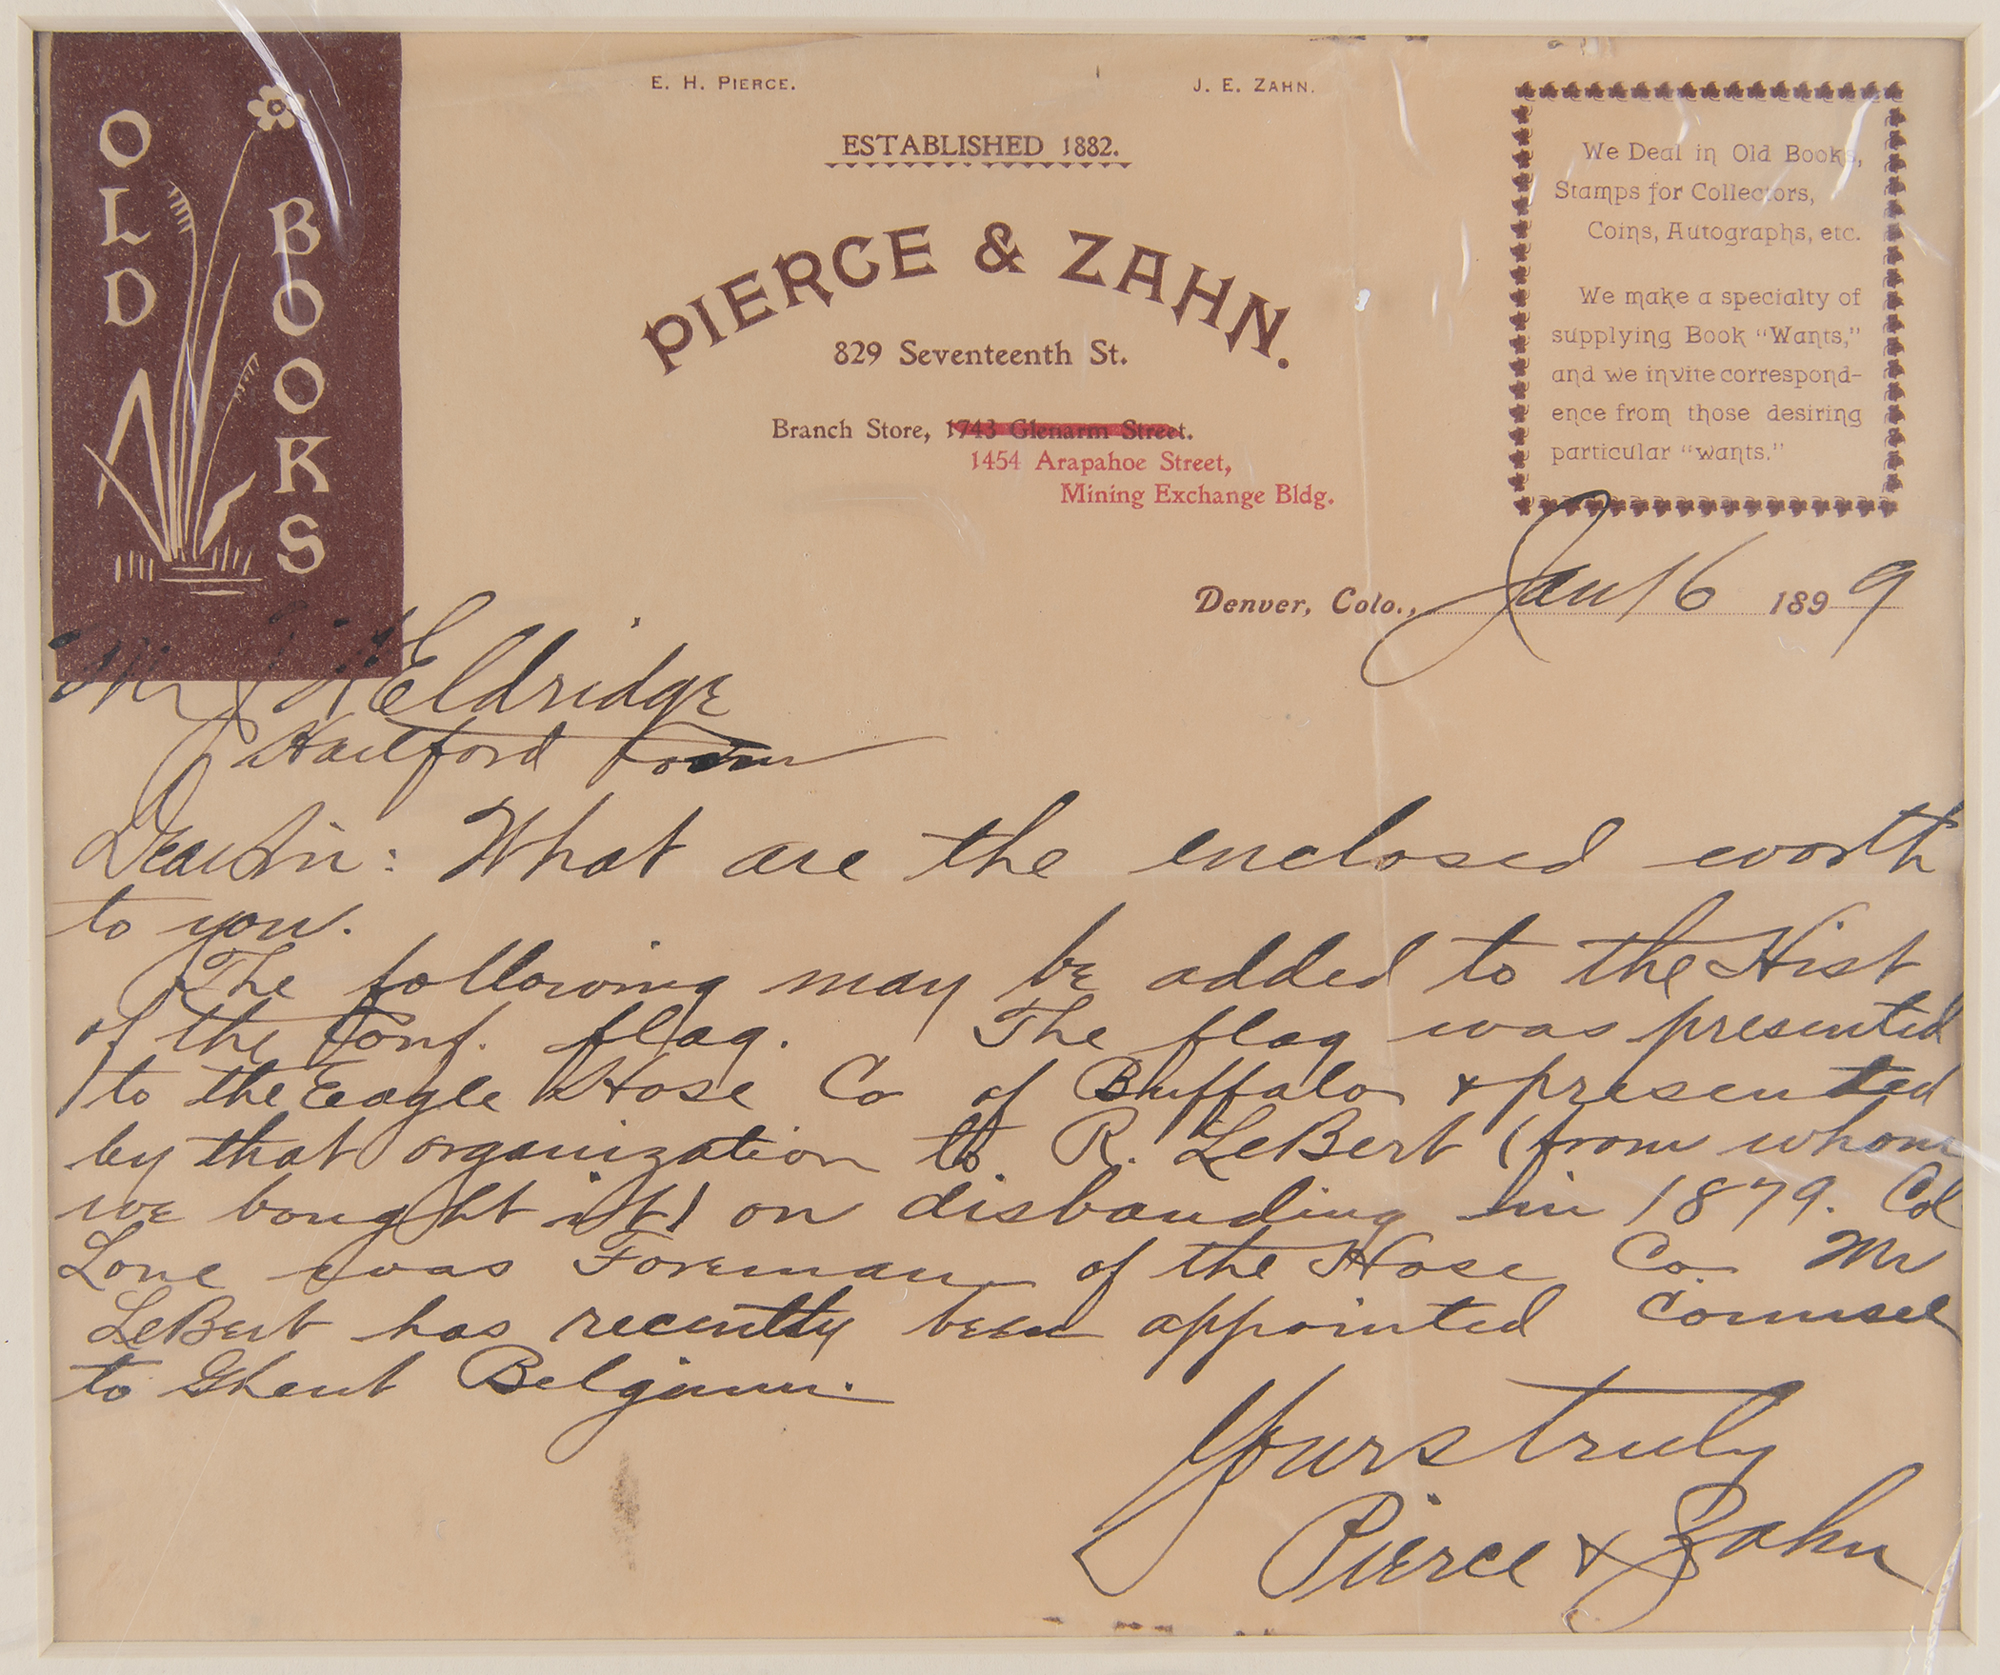 OLD
BOOKS
E. H. PIERCE.
J. E. ZAHN.
ESTABLISHED 1882.
PIERCE & ZAHN.
829 Seventeenth St.
Branch Store, 1743 Glenarm Street.
1454 Arapahoe Street,
Mining Exchange Bldg.
We Deal in Old Books,
Stamps for Collectors,
Coins, Autographs, etc.
We make a specialty of
supplying Book "Wants,"
and we invite correspond-
ence from those desiring
particular "wants."
Denver, Colo., Jan 16 1899
Mr Eldridge
Hartford Conn
Dear Sir: What are the enclosed worth
to you.
The following may be added to the Hist
of the Conf. flag. The flag was presented
to the Eagle Hose Co of Buffalo & presented
by that organization to R. LeBert (from whom
we bought it) on disbanding in 1879. Col
Lone was Foreman of the Hose Co. Mr
LeBert has recently been appointed Counsel
to Ghent Belgium.
Yours truly
Pierce & Zahn